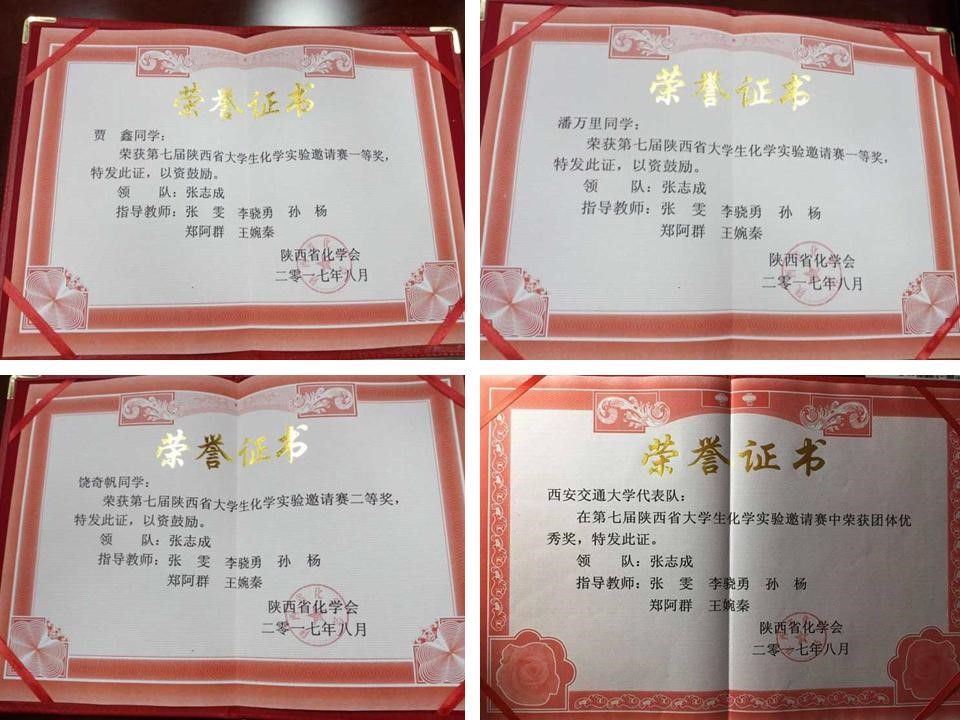 荣誉证书
贾 鑫同学：
荣获第七届陕西省大学生化学实验邀请赛一等奖，
特发此证，以资鼓励。
领 队：张志成
指导教师：张 雯 李骁勇 孙 杨
郑阿群 王婉秦
陕西省化学会
二零一七年八月
荣誉证书
潘万里同学：
荣获第七届陕西省大学生化学实验邀请赛一等奖，
特发此证，以资鼓励。
领 队：张志成
指导教师：张 雯 李骁勇 孙 杨
郑阿群 王婉秦
陕西省化学会
二零一七年八月
荣誉证书
饶奇帆同学：
荣获第七届陕西省大学生化学实验邀请赛二等奖，
特发此证，以资鼓励。
领 队：张志成
指导教师：张 雯 李骁勇 孙 杨
郑阿群 王婉秦
陕西省化学会
二零一七年八月
荣誉证书
西安交通大学代表队：
在第七届陕西省大学生化学实验邀请赛中荣获团体优
秀奖，特发此证。
领 队：张志成
指导教师：张 雯 李骁勇 孙 杨
郑阿群 王婉秦
陕西省化学会
二零一七年八月